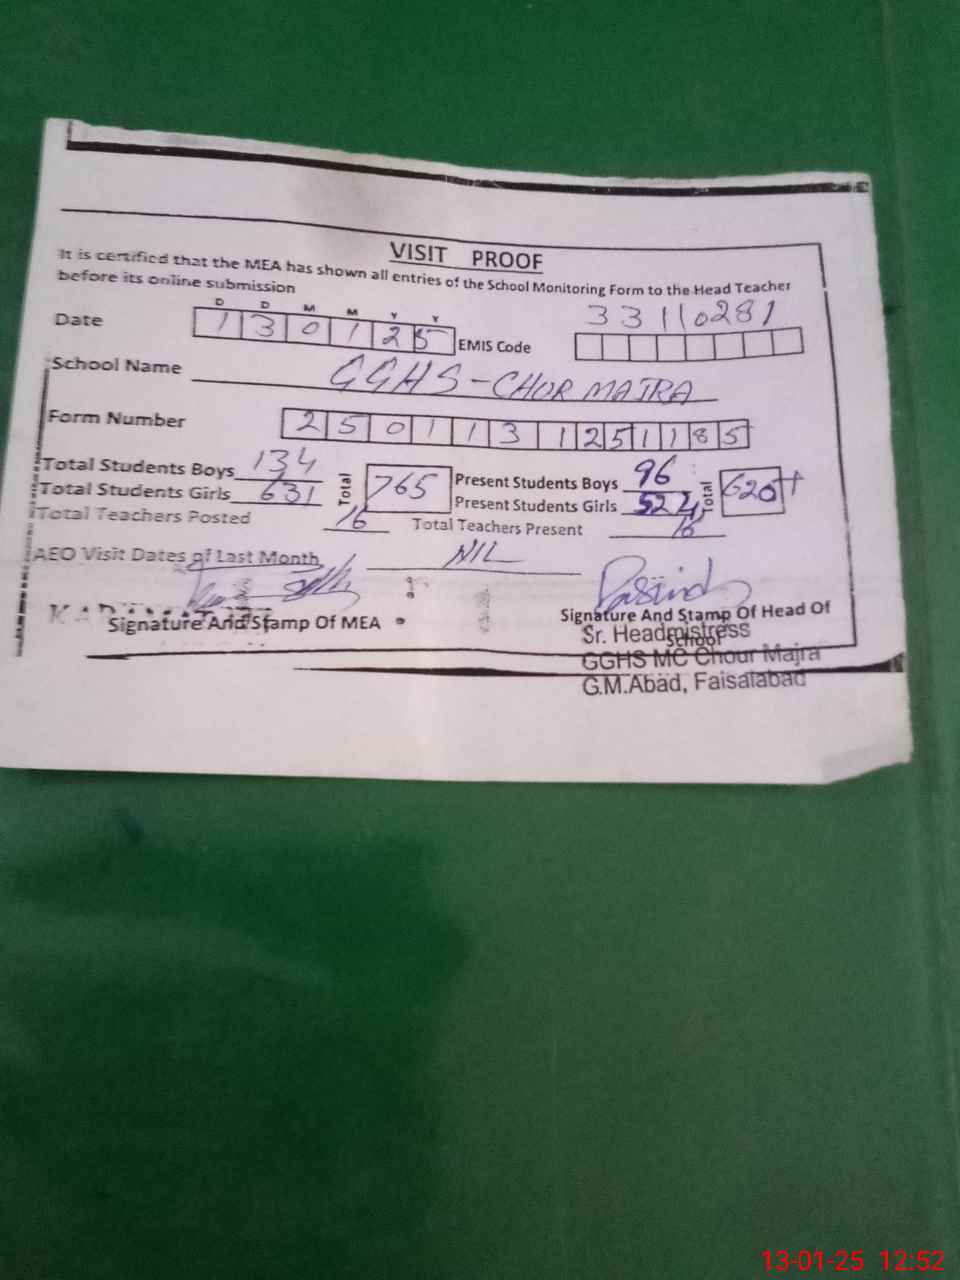 VISIT PROOF
It is certified that the MEA has shown all entries of the School Monitoring Form to the Head Teacher
before its online submission
D D M M Y Y
Date 1 3 0 1 2 5 EMIS Code 33110281
School Name GGHS-CHOR MAJRA
Form Number 2 5 0 1 1 3 1 2 5 1 1 8 5
Total Students Boys 134 Total 765 Present Students Boys 96 Total 620
Total Students Girls 631 Present Students Girls 524
Total Teachers Posted 16 Total Teachers Present 16
AEO Visit Dates of Last Month NIL
Signature And Stamp Of MEA Signature And Stamp Of Head Of
School
Sr. Headmistress
GGHS MC Chour Majra
G.M.Abad, Faisalabad
13-01-25 12:52